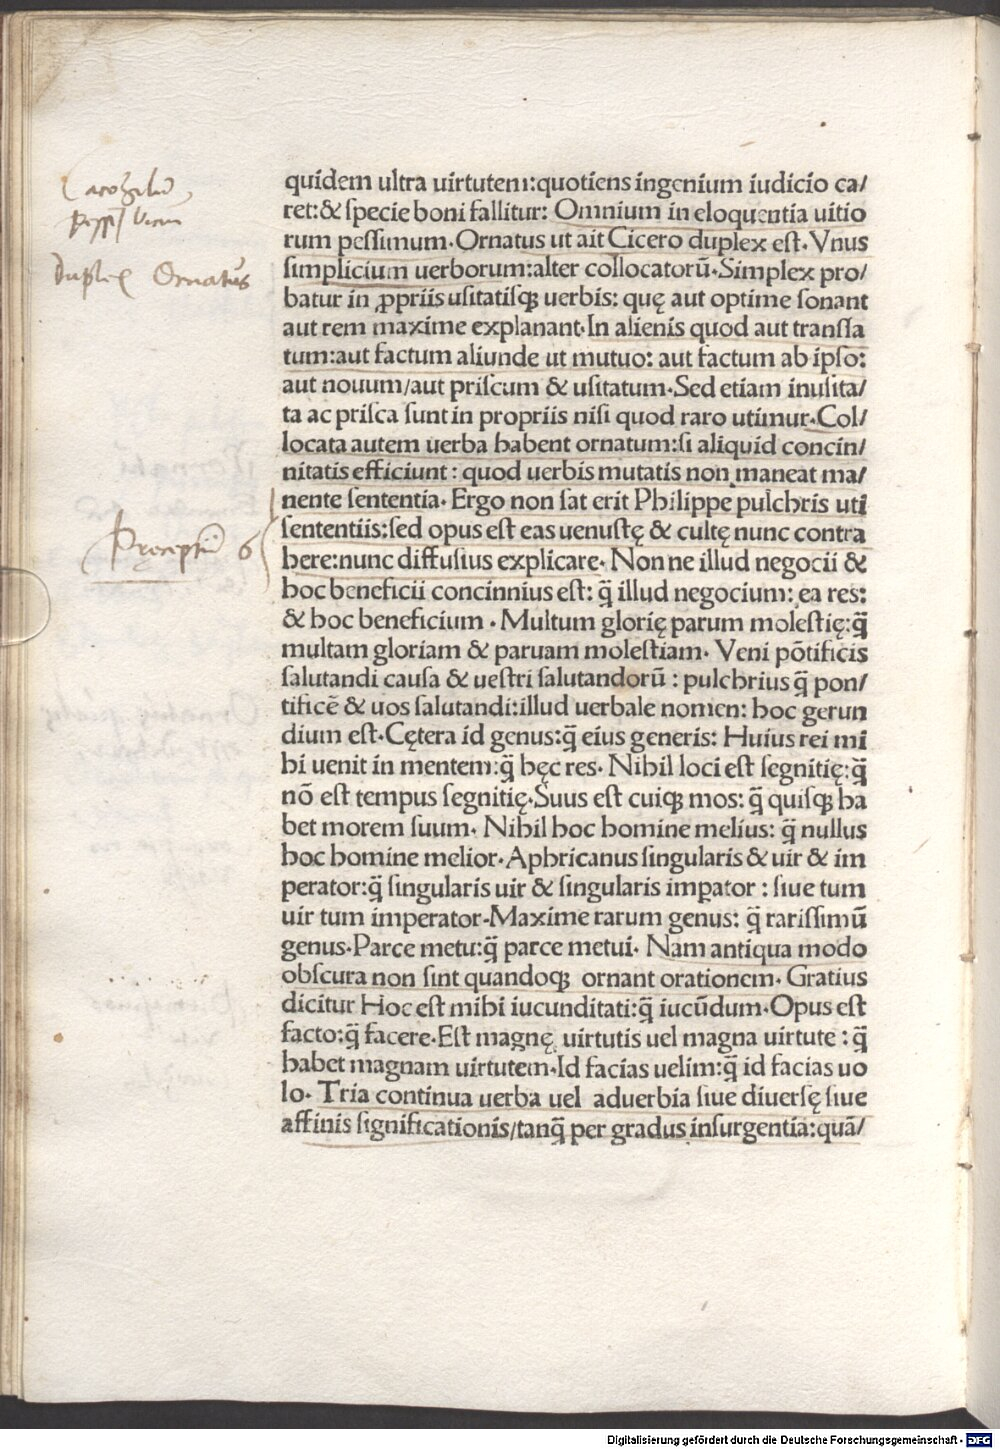 Cacozelum
pessimum Vicium
Duplex Ornatus
Pręceptum 6
quidem ultra uirtutem:quotiens ingenium iudicio ca/
ret:& ſpecie boni fallitur: Omnium in eloquentia uitio
rum peſſimum·Ornatus ut ait Cicero duplex eſt·Vnus
ſimplicium uerborum:alter collocatorū·Simplex pro/
batur in ꝓpriis uſitatiſqꝫ uerbis: quę aut optime ſonant
aut rem maxime explanant·In alienis quod aut tranſla
tum:aut factum aliunde ut mutuo: aut factum ab ipſo:
aut nouum/aut priſcum & uſitatum·Sed etiam inuſita/
ta ac priſca ſunt in propriis niſi quod raro utimur·Col/
locata autem uerba habent ornatum:ſi aliquid concin/
nitatis efficiunt: quod uerbis mutatis non maneat ma/
nente ſententia· Ergo non ſat erit Philippe pulchris uti
ſententiis:ſed opus eſt eas uenuſtę & cultę nunc contra
here:nunc diffuſius explicare· Non ne illud negocii &
hoc beneficii concinnius eſt: q̄ illud negocium: ea res:
& hoc beneficium · Multum glorię parum moleſtię:q̄
multam gloriam & paruam moleſtiam· Veni pōtificis
ſalutandi cauſa & ueſtri ſalutandorū : pulchrius q̄ pon/
tificē & uos ſalutandi:illud uerbale nomen: hoc gerun
dium eſt·Cętera id genus:q̄ eius generis: Huius rei mi
hi uenit in mentem:q̄ hęc res· Nihil loci eſt ſegnitię:q̄
nō eſt tempus ſegnitię·Suus eſt cuiqꝫ mos: q̄ quiſqꝫ ha
bet morem ſuum· Nihil hoc homine melius: q̄ nullus
hoc homine melior·Aphricanus ſingularis & uir & im
perator:q̄ ſingularis uir & ſingularis impator : ſiue tum
uir tum imperator·Maxime rarum genus: q̄ rariſſimū
genus·Parce metu:q̄ parce metui· Nam antiqua modo
obſcura non ſint quandoqꝫ ornant orationem· Gratius
dicitur Hoc eſt mihi iucunditati:q̄ iucūdum·Opus eſt
facto:q̄ facere·Eſt magnę uirtutis uel magna uirtute : q̄
habet magnam uirtutem·Id facias uelim:q̄ id facias uo
lo· Tria continua uerba uel aduerbia ſiue diuerſę ſiue
affinis ſignificationis/tanq̄ per gradus inſurgentia:quā/
Digitalisierung gefördert durch die Deutsche Forschungsgemeinschaft - DFG